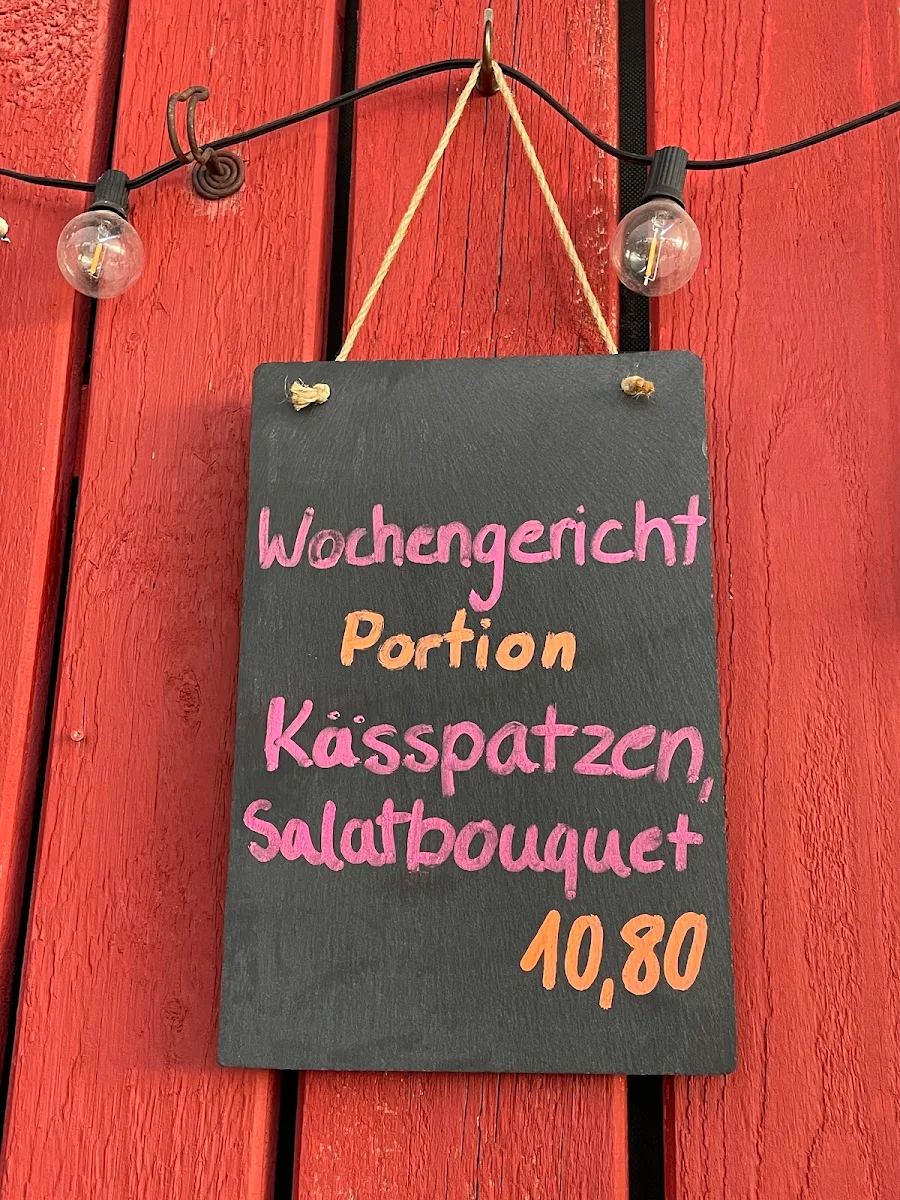 Wochengericht
Portion
Kässpatzen,
Salatbouquet
10,80